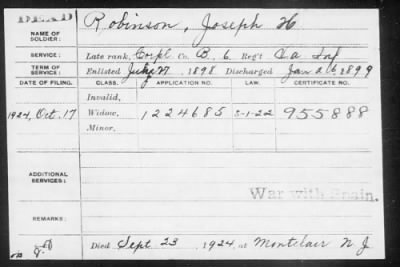 DEAD
NAME OF SOLDIER: Robinson, Joseph H
SERVICE: Late rank, Corpl Co. B, 6 Reg't Va Inf
TERM OF SERVICE: Enlisted July 27, 1898 Discharged Jan 26 1899
DATE OF FILING. CLASS. APPLICATION NO. LAW. CERTIFICATE NO.
Invalid,
1924, Oct. 17 Widow, 1224685 5-1-22 955888
Minor,
ADDITIONAL SERVICES:
War with Spain.
REMARKS:
Died Sept. 23, 1924, at Montclair N. J